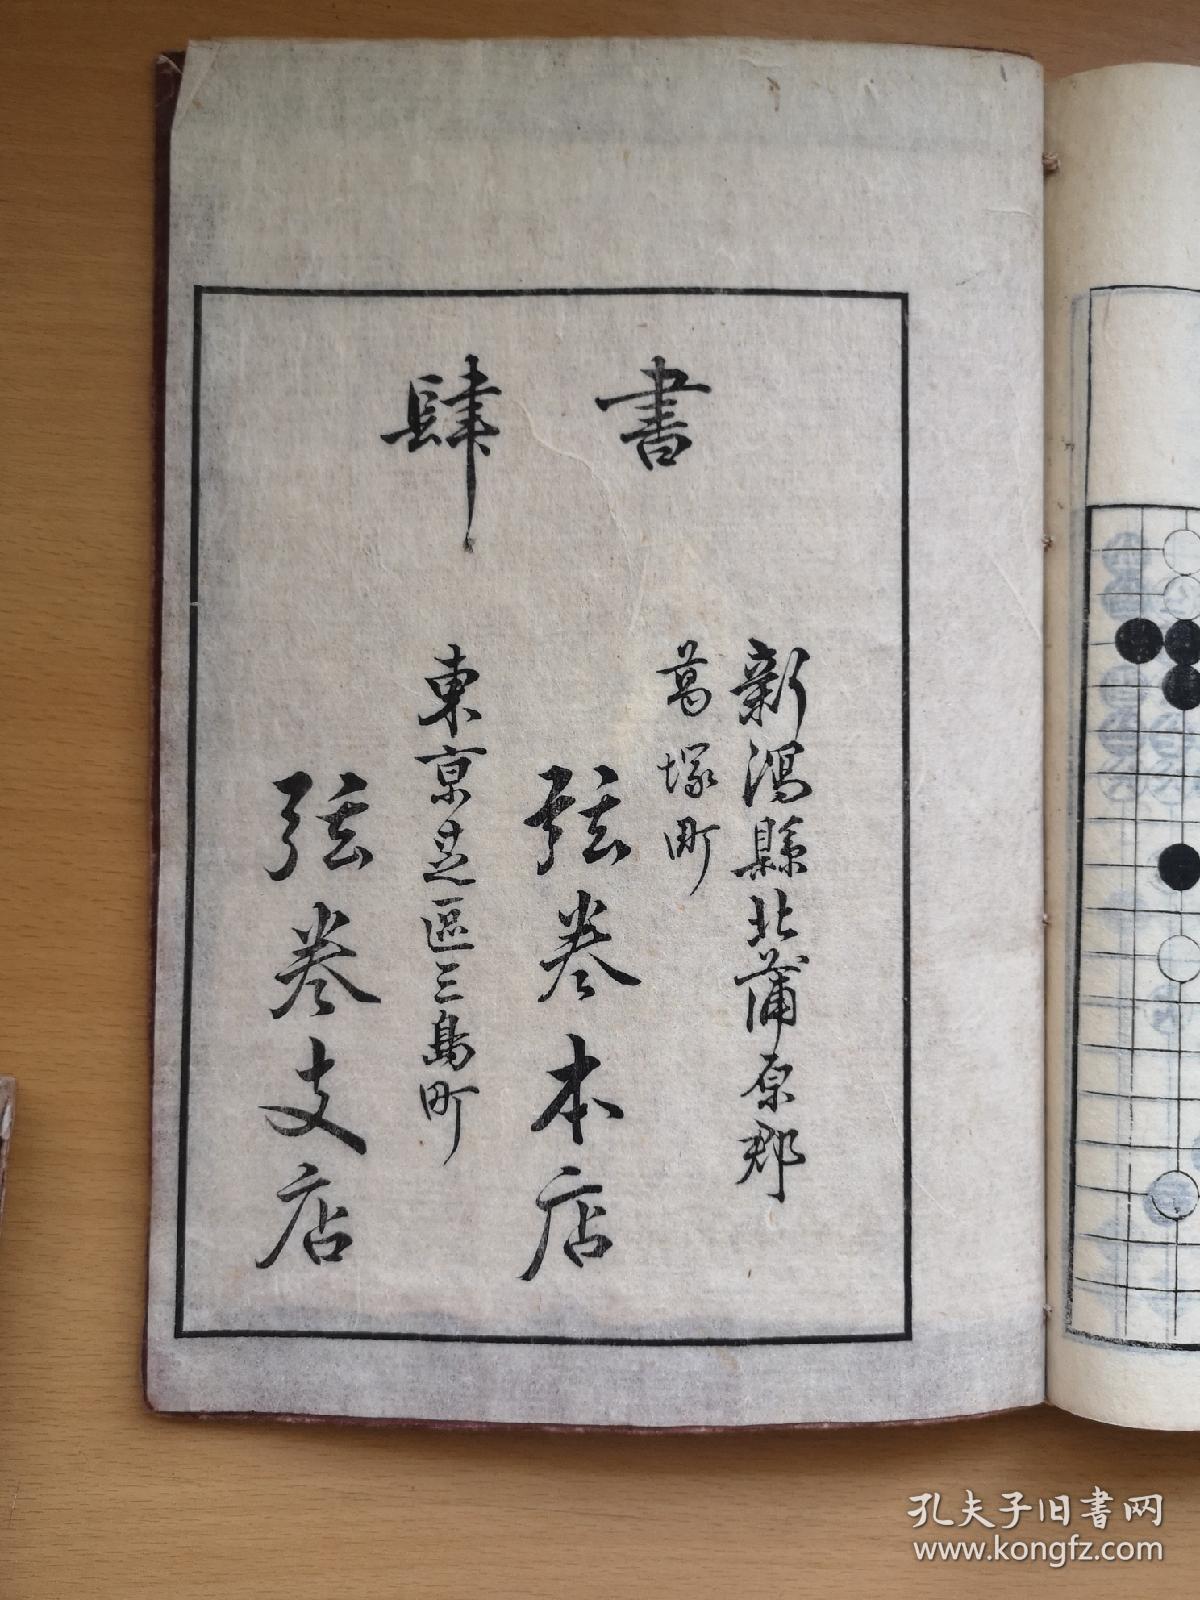 書肆
新潟縣北蒲原郡
葛塚町
弦卷本店
東京芝區三島町
弦卷支店
孔夫子旧书网
www.kongfz.com